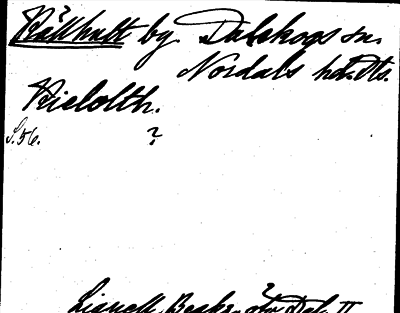 Råkhult by Dalskogs sn.
Nordals hd. Dls.
Kielolth.
S. 56. ?
Lignell, Beskr. öfv. Dal. II